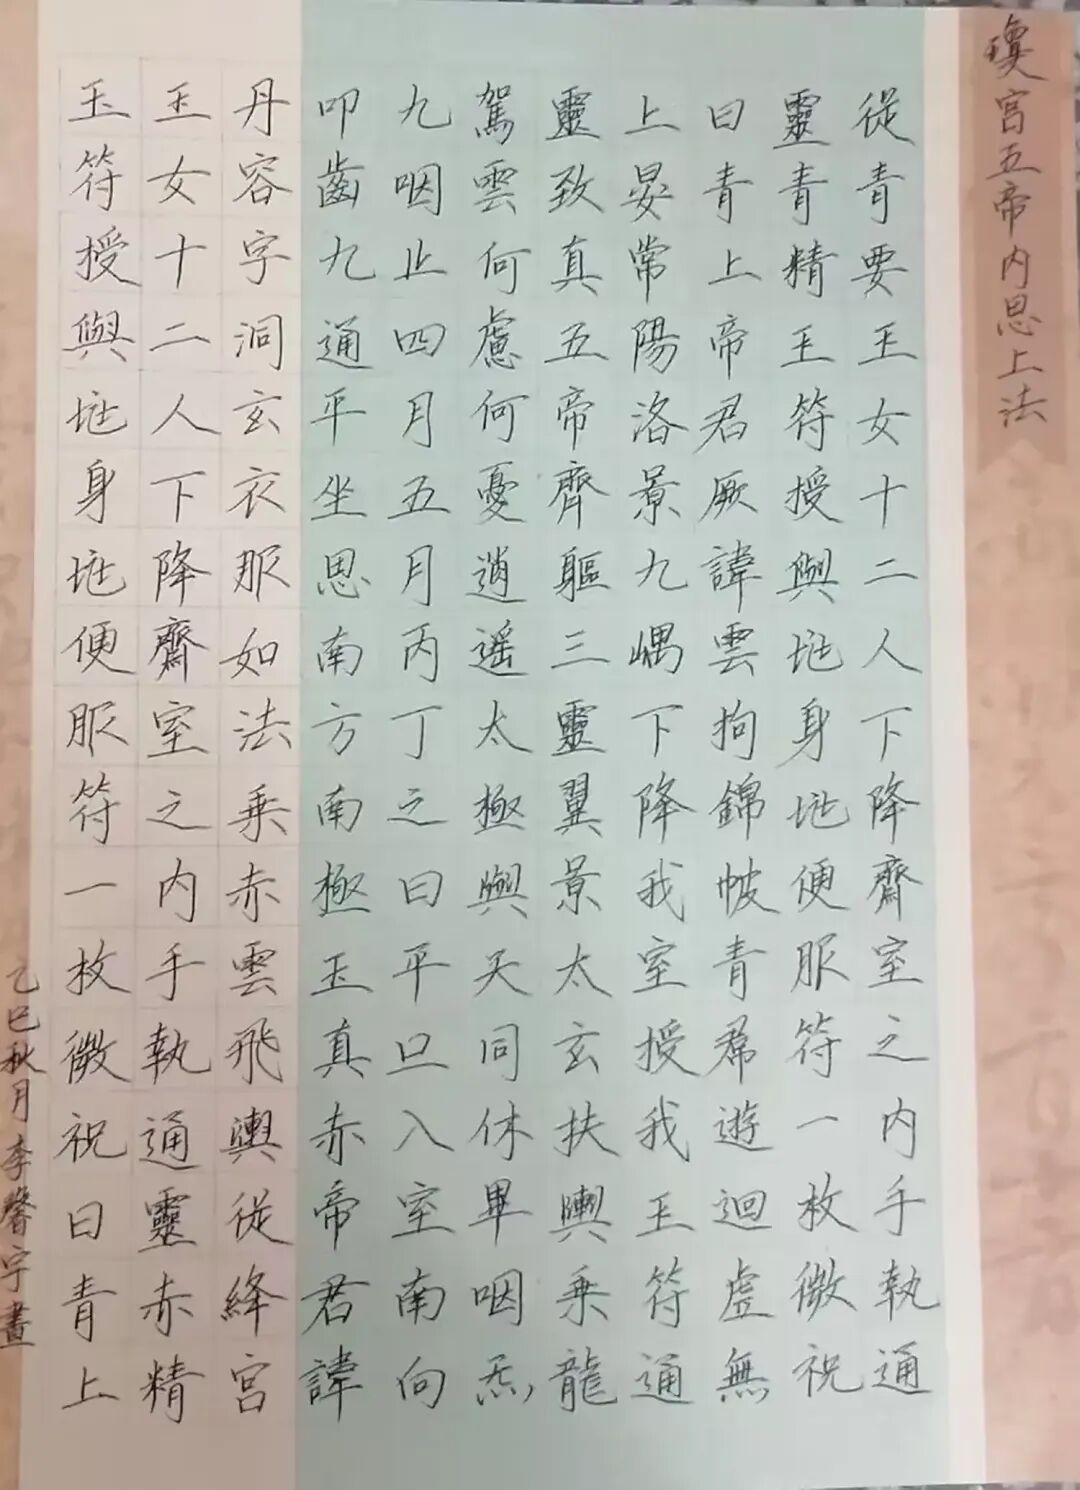 瓊宮五帝內思上法
從青要玉女十二人下降齋室之内手執通
靈青精玉符授與坒身坒便服符一枚微祝
曰青上帝君厥諱雲拘錦帔青帬遊迴虛無
上晏常陽洛景九嵎下降我室授我玉符通
靈致真五帝齊軀三靈翼景太玄扶輿乘龍
駕雲何慮何憂逍遥太極與天同休畢咽炁
九咽止四月五月丙丁之日平旦入室南向
叩齒九通平坐思南方南極玉真赤帝君諱
丹容字洞玄衣服如法乘赤雲飛輿從絳宮
玉女十二人下降齋室之内手執通靈赤精
玉符授與坒身坒便服符一枚微祝曰青上
乙巳秋月李馨宇書